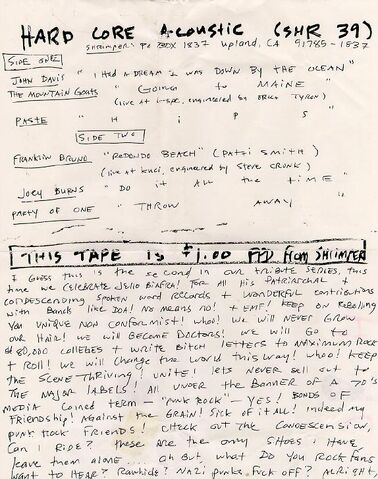 HARD CORE ACOUSTIC (SHR 39)
SHRIMPER: PO BOX 1837 Upland, CA 91785-1837
SIDE ONE
JOHN DAVIS "I Had A DREAM I WAS DOWN BY THE OCEAN"
THE MOUNTAIN GOATS "GOING to MAINE"
(live at kspc, engineered by ERICK TYRON)
PASTE "H i P S"
SIDE TWO
FRANKLIN BRUNO "REDONDO BEACH" (PATTI SMITH)
(live at kuci, engineered by STEVE CRONK)
Joey BURNS "DO it All the tiME"
PARTY OF ONE "THROW AWAY"
THIS TAPE IS $1.00 PPD from SHRIMPER
I GUESS this is the second in our tribute SERIES, this
time we CELEBRATE JELLO BIAFRA! FOR All His PATRIARCHAL +
CONDESCENDING SPOKEN WORD RECORDS + WONDERFUL CONTRIBUTIONS
with BANDS like DOA! No means no! + EMF! KEEP on REBELLING
You UNIQUE NON CONFORMIST! who! WE will NEVER GROW
OUR HAIR! WE will BECOME DOCTORS! WE will GO to
COLLEGES + WRITE BITCH LETTERS to MAXIMUM ROCK
+ Roll! WE will CHANGE the WORLD this WAY! whoo! KEEP
THE SCENE THRIVING! UNITE! lets NEVER SELL out to
THE MAJOR LABELS! All UNDER the BANNER OF A 70's
MEDIA COINED TERM — "PUNK ROCK" — YES! BONDS OF
FRIENDSHIP! AGAINST the GRAIN! SICK of it All! Indeed my
PUNK ROCK FRIENDS! CHECK out the CONCESSION,
CAN I RIDE? these are the only SHOES I HAVE
leave them alone... ah But what DO YOU ROCK FANS
WANT to HEAR? RAWHIDE? NAZI punks FUCK OFF? ALRIGHT,